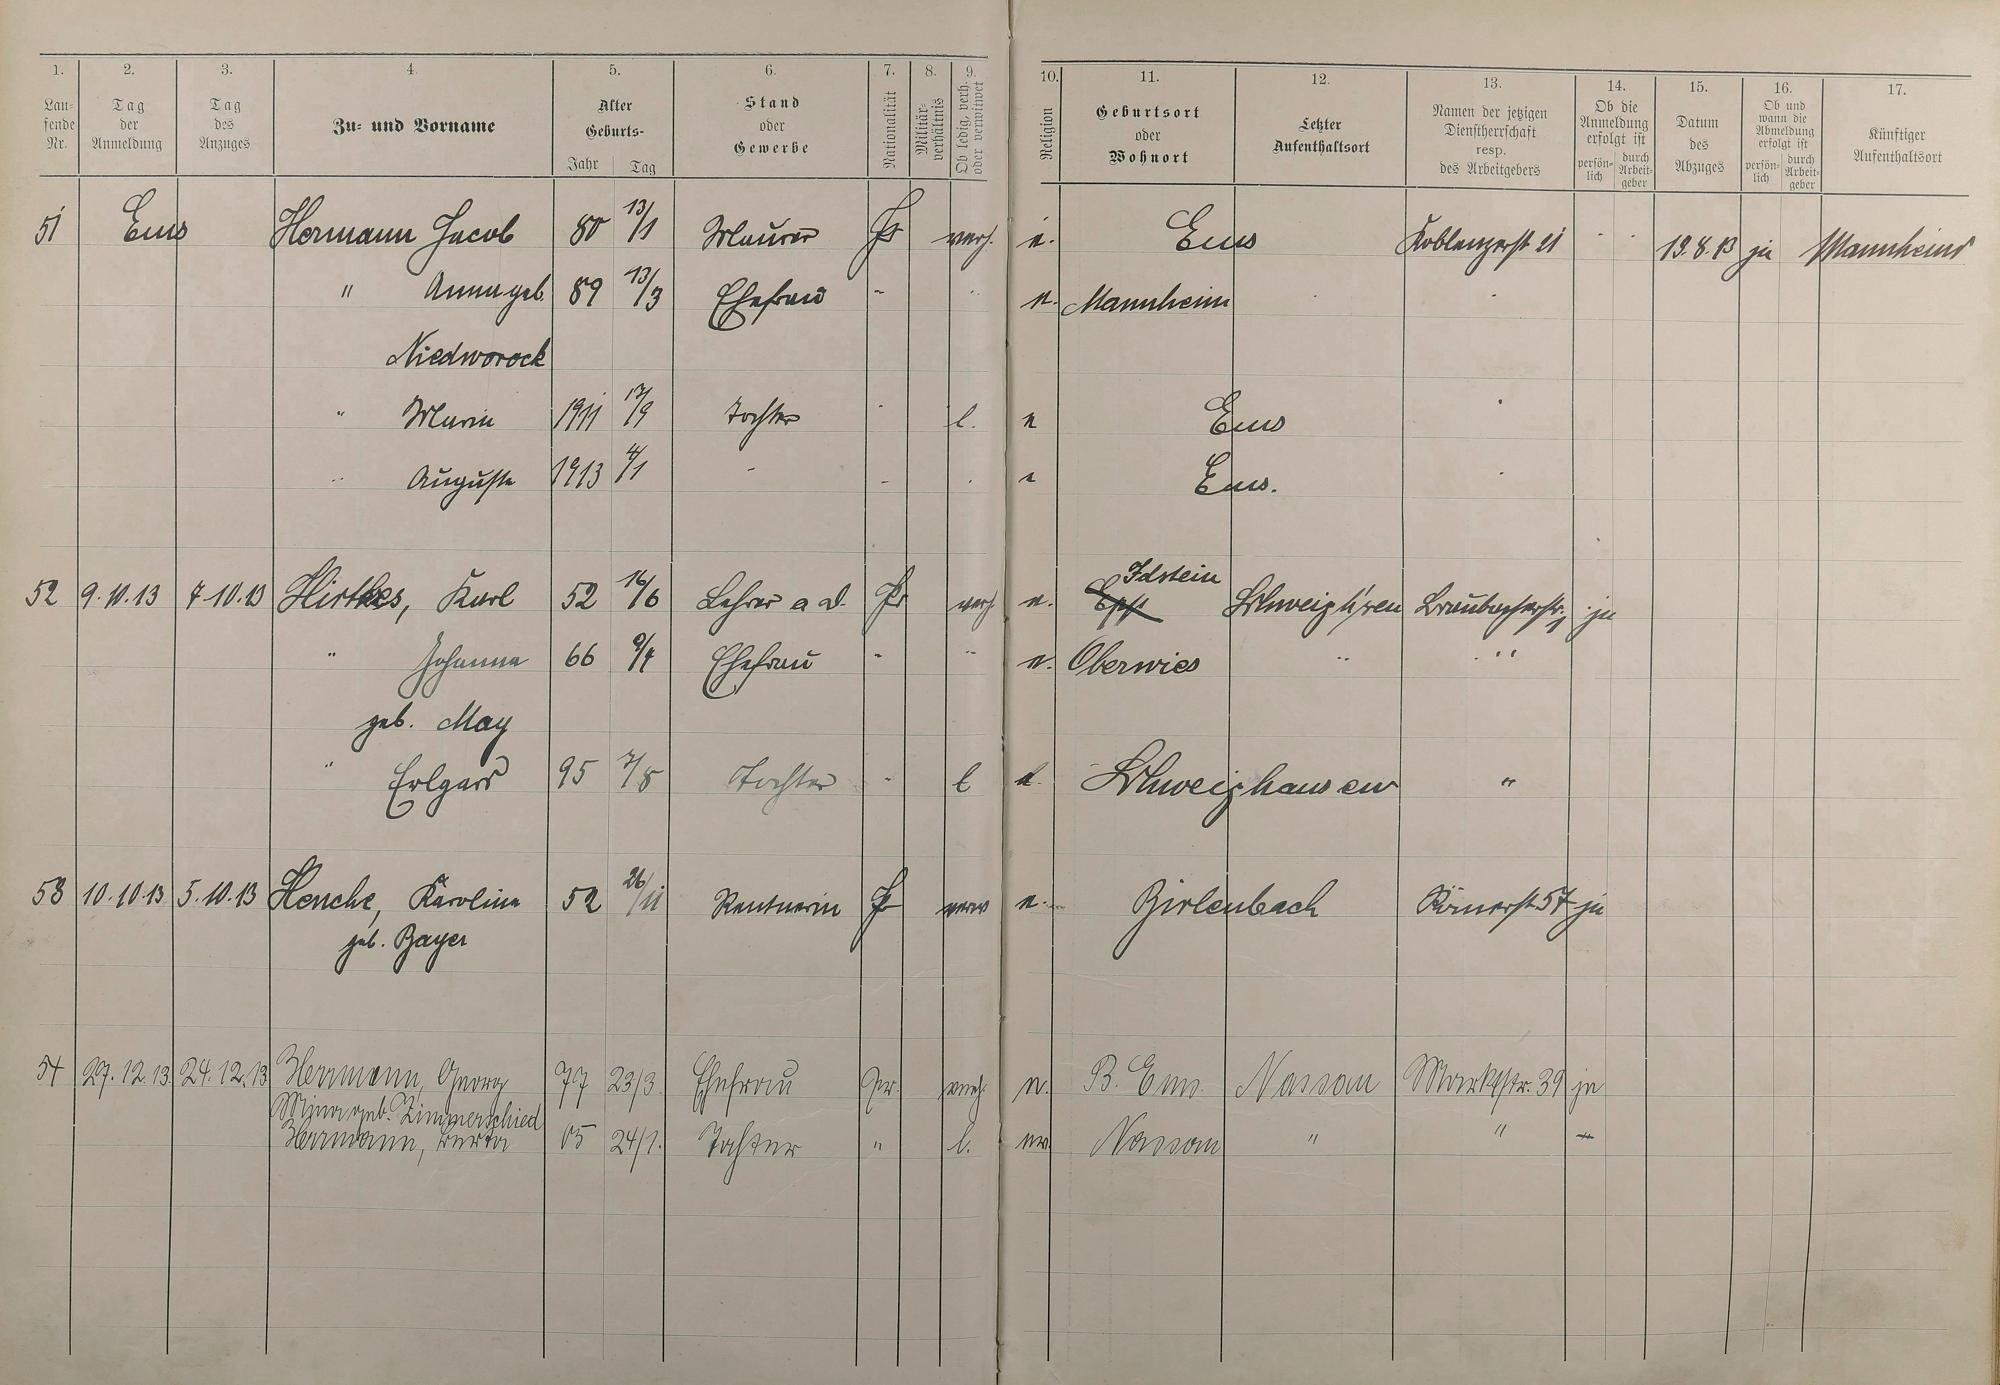 1. 2. 3. 4. 5. 6. 7. 8. 9. 10. 11. 12. 13. 14. 15. 16. 17.
Lau-
fende
Nr.
Tag
der
Anmeldung
Tag
des
Anzuges
Zu- und Vorname
Alter
Geburts-
Jahr Tag
Stand
oder
Gewerbe
Nationalität
Militär-
verhältnis
Ob ledig, verh.
oder verwitwet
Religion
Geburtsort
oder
Wohnort
Letzter
Aufenthaltsort
Namen der jetzigen
Dienstherrschaft
resp.
des Arbeitgebers
Ob die
Anmeldung
erfolgt ist
persön-
lich
durch
Arbeit-
geber
Datum
des
Abzuges
Ob und
wann die
Abmeldung
erfolgt ist
persön-
lich
durch
Arbeit-
geber
Künftiger
Aufenthaltsort
51 Ems Hermann Jacob 80 13/1 Maurer Pr verh. e. Ems Koblenzerst 21 19.8.13 ja Mannheim
" Anna geb. 89 13/3 Ehefrau " e. Mannheim
Niedworock
" Maria 1911 17/9 Tochter l. e Ems
" Auguste 1913 4/1 e Ems.
52 9.10.13 7.10.13 Hirtkes, Karl 52 16/6 Lehrer a d. Pr verh e. Idstein Braubacherstr. ja
" Johanna 66 9/4 Ehefrau " " e. Oberwies " "
geb. May
" Erlgard 95 7/8 Tochter " l e. Schweighausen "
53 10.10.13 5.10.13 Henche, Karoline 52 26/11 Rentnerin Pr verw e. Birlenbach Römerst 57 ja
geb. Bayer
54 27.12.13. 24.12.13 Herrmann, Georg 77 23/3. Ehefrau Pr. verh. e. B. Ems. Nassau Marktstr. 39 ja
Mina geb. Zimmerschied
Herrmann, Berta 05 24/1. Tochter " l. ev Nassau " "